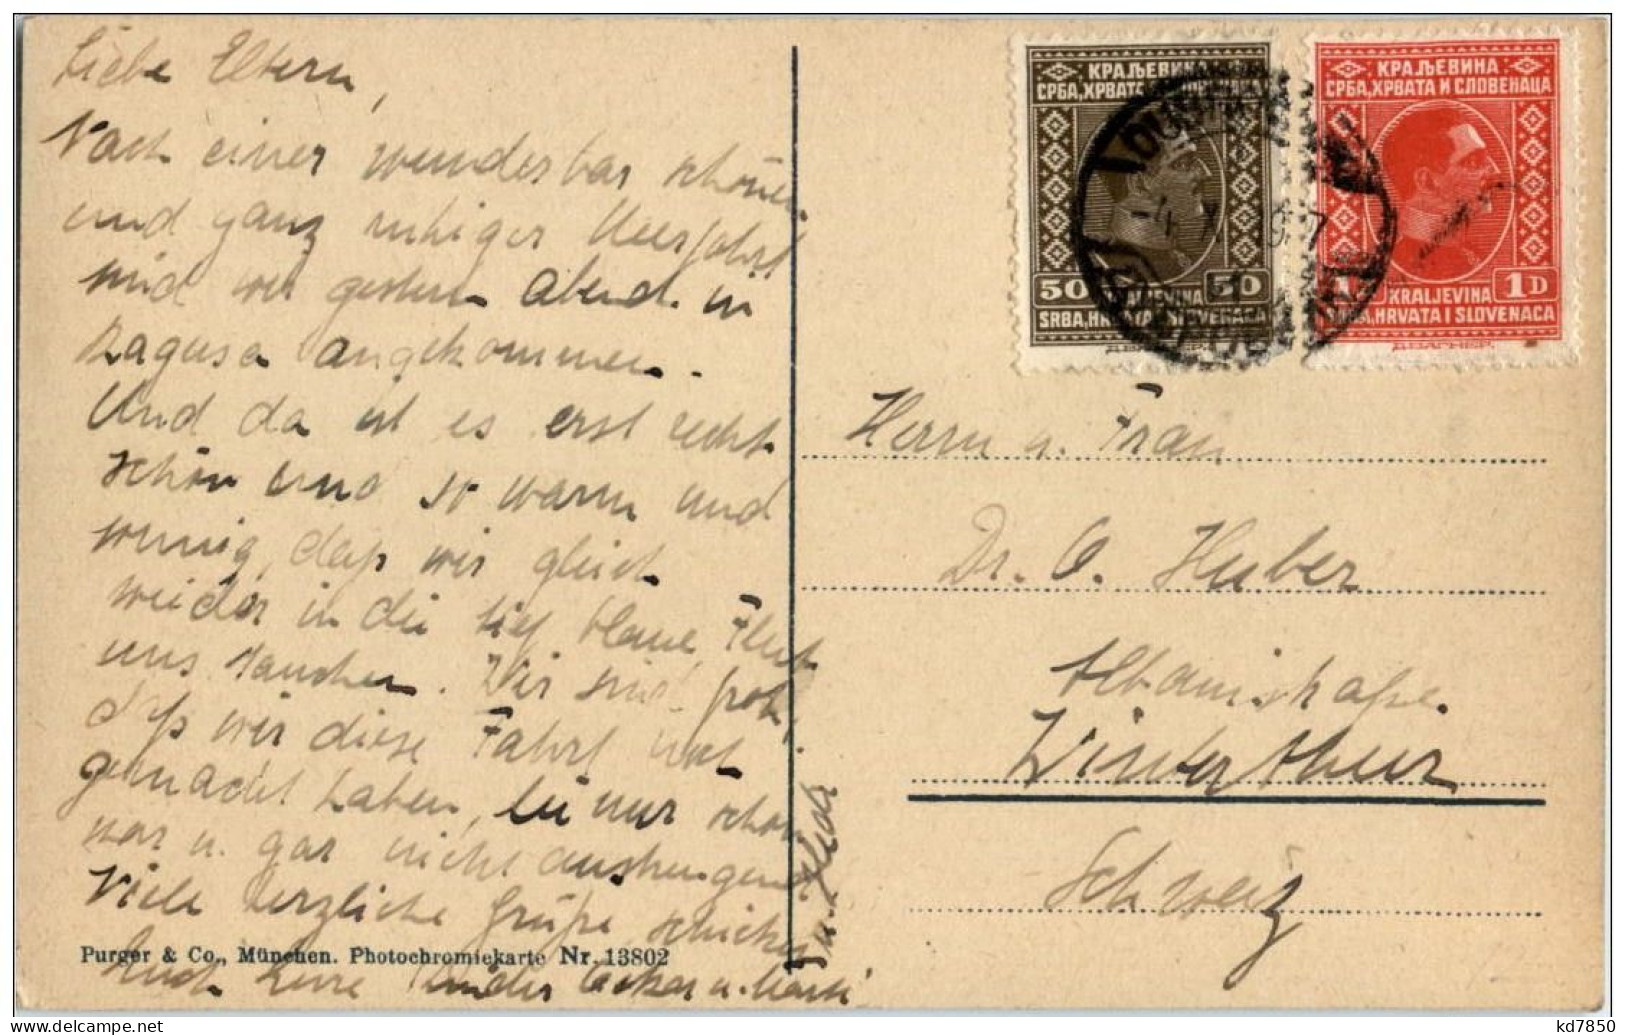 Liebe Eltern,
Nach einer wunderbar schönen
und ganz ruhiger Meerfahrt
sind wir gestern Abend in
Ragusa angekommen.
Und da ist es erst recht
schön und so warm und
wunnig, daß wir gleich
wieder in die tief blaue Flut
uns tauchen. Wir sind froh,
daß wir diese Fahrt
gemacht haben, die nur schön
war u. gar nicht anstrengend.
Viele herzliche Grüße schicken
Euch Eure Kinder Oskar u.
КРАЉЕВИНА
СРБА, ХРВАТА И СЛОВЕНАЦА
50 50
KRALJEVINA
SRBA, HRVATA I SLOVENACA
КРАЉЕВИНА
СРБА, ХРВАТА И СЛОВЕНАЦА
1 1D
KRALJEVINA
SRBA, HRVATA I SLOVENACA
Herrn u. Frau
Dr. O. Huber
Albanistraße.
Winterthur
Schweiz
Purger & Co., München. Photochromiekarte Nr. 13802
kd7850